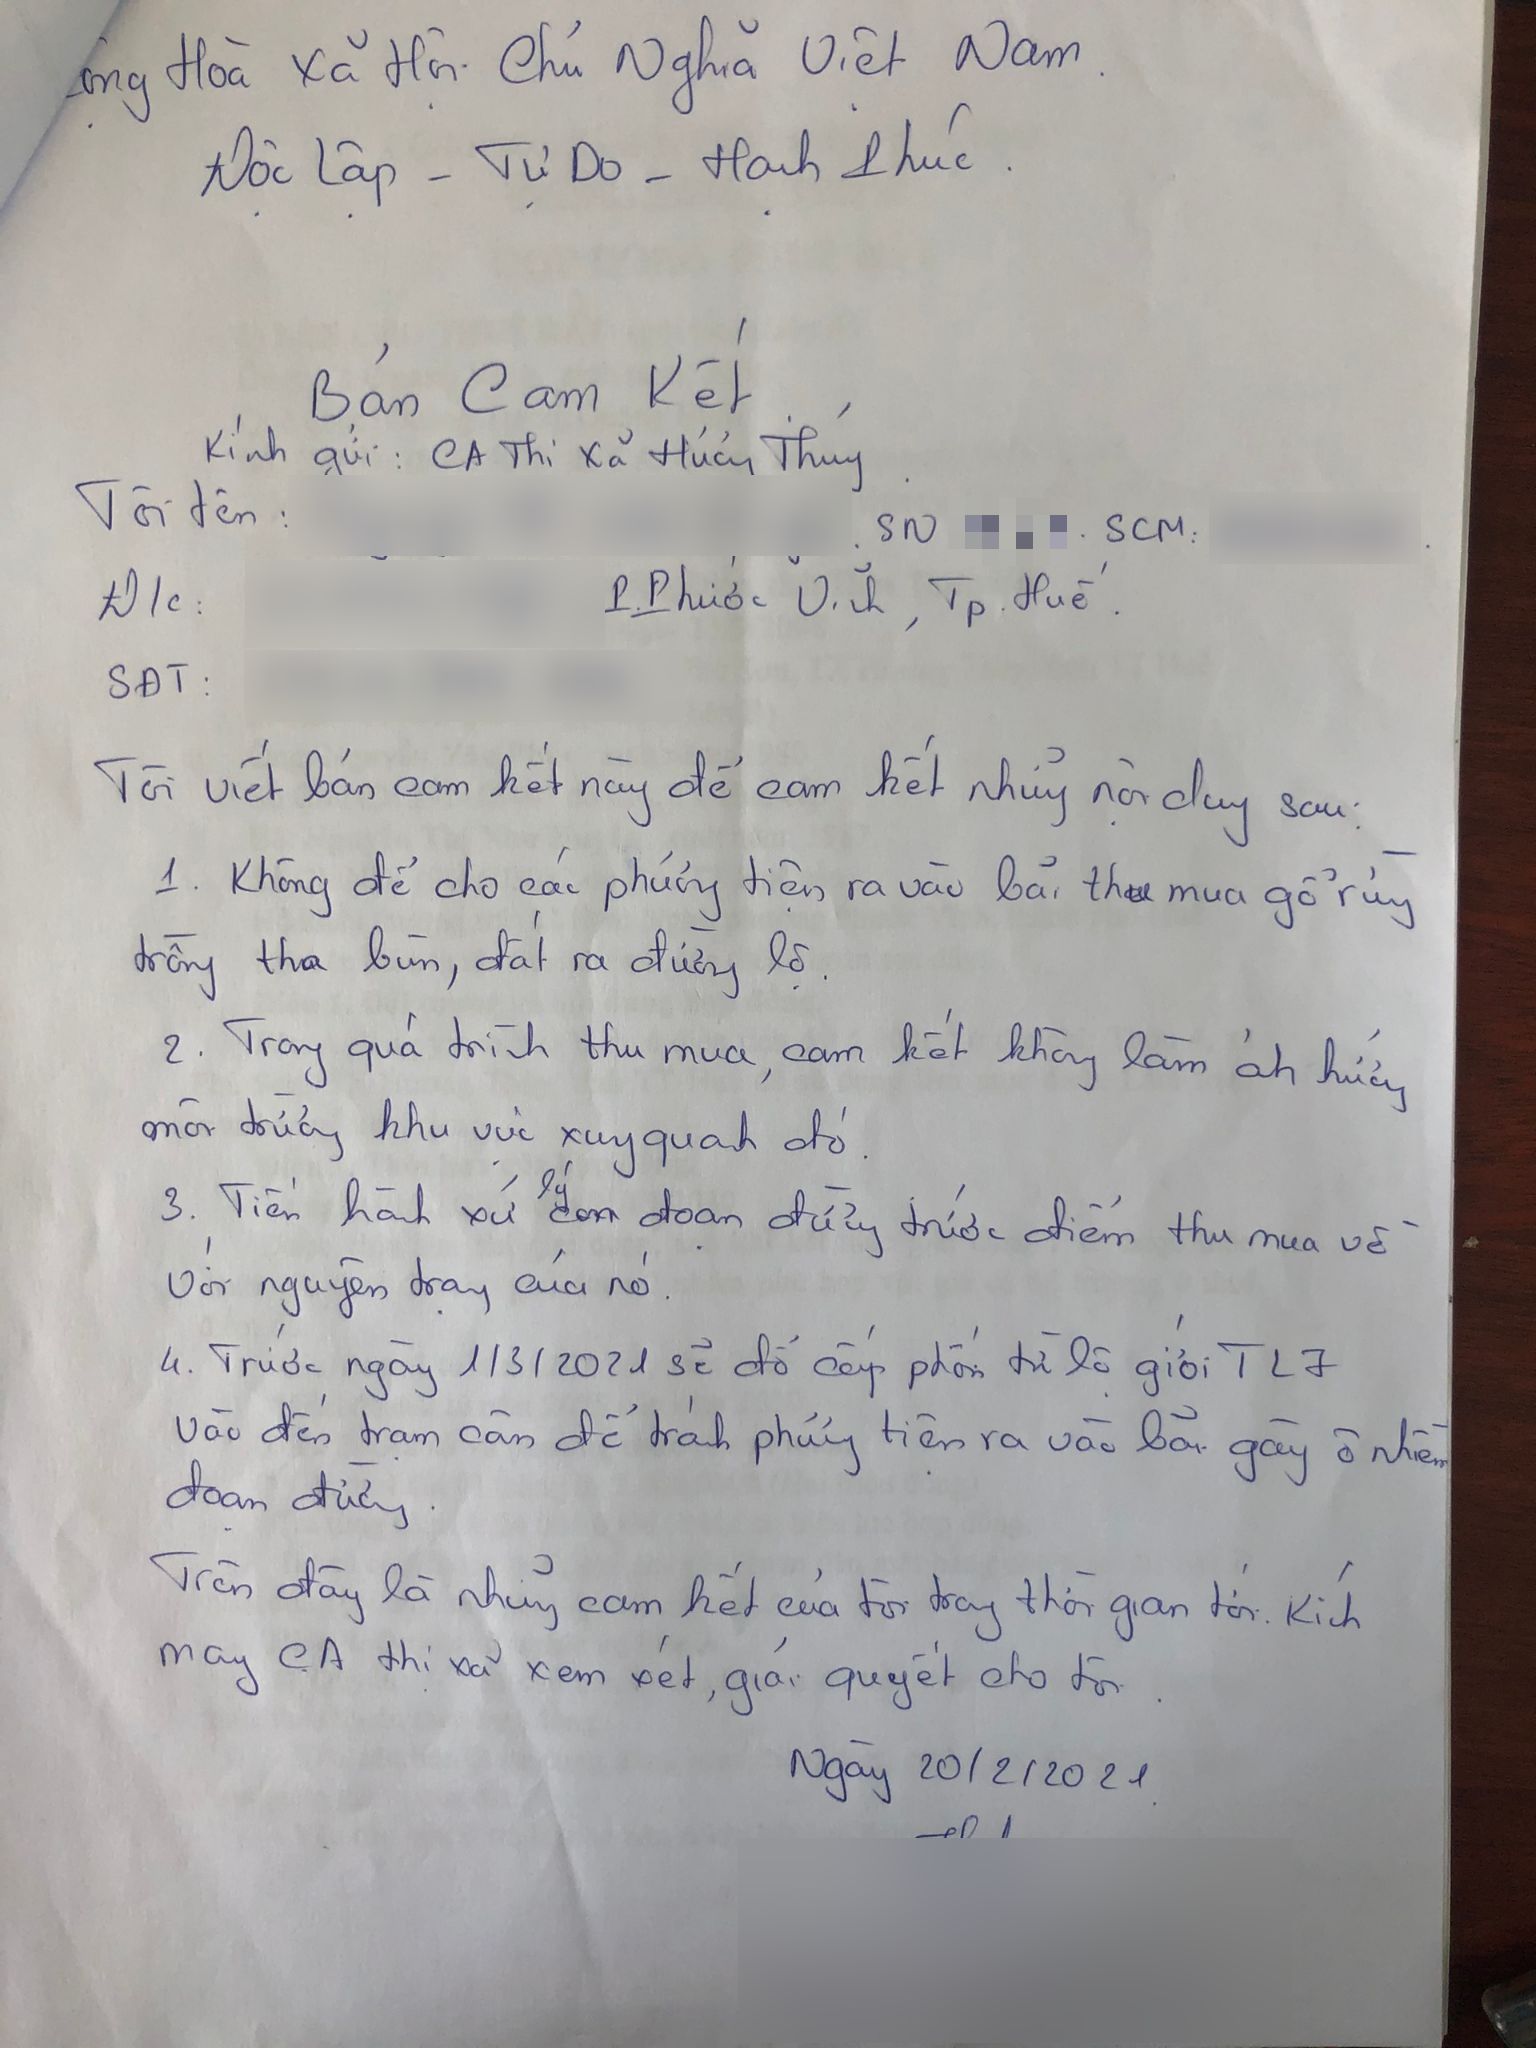 Cộng Hoà Xã Hội Chủ Nghĩa Việt Nam.
Độc Lập - Tự Do - Hạnh Phúc.
Bản Cam Kết
Kính gửi: CA Thị Xã Hương Thủy.
Tôi tên: SN SCM:
Đ/c: P. Phước Vĩnh, Tp. Huế.
SĐT:
Tôi viết bản cam kết này để cam kết những nội dung sau:
1. Không để cho các phương tiện ra vào bãi thu mua gỗ rừng
trồng tha bùn, đất ra đường lộ.
2. Trong quá trình thu mua, cam kết không làm ảnh hưởng
môi trường khu vực xung quanh đó.
3. Tiến hành xử lý đoạn đường trước điểm thu mua về
với nguyên trạng của nó.
4. Trước ngày 1/3/2021 sẽ đổ cấp phối từ lộ giới TL7
vào đến trạm cân để tránh phương tiện ra vào bãi gây ô nhiễm
đoạn đường.
Trên đây là những cam kết của tôi trong thời gian tới. Kính
mong CA thị xã xem xét, giải quyết cho tôi.
Ngày 20/2/2021